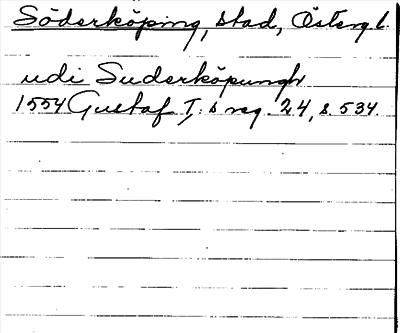 Söderköping, stad, Österg l.
udi Suderköpungh
1554 Gustaf I:s reg. 24, s. 534.